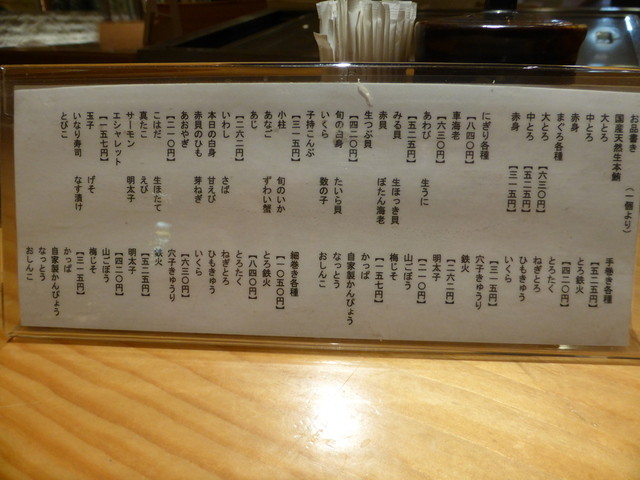 お品書き (一個より)
国産天然生本鮪
大とろ
中とろ
赤身
まぐろ各種
大とろ [六三〇円]
中とろ [五二五円]
赤身 [三一五円]
にぎり各種
[八四〇円]
車海老
[六三〇円]
あわび 生うに
[五二五円]
みる貝 生ほっき貝
赤貝 ぼたん海老
生つぶ貝
[四二〇円]
旬の白身 たいら貝
いくら 数の子
子持こんぶ
[三一五円]
小柱 旬のいか
あなご ずわい蟹
あじ
[二六二円]
いわし さば
本日の白身 甘えび
赤貝のひも 芽ねぎ
あおやぎ
[二一〇円]
こはだ 生ほたて
真たこ えび
サーモン 明太子
エシャレット
[一五七円]
玉子 げそ
いなり寿司 なす漬け
とびこ
手巻き各種
[五二五円]
とろ鉄火
[四二〇円]
とろたく
ねぎとろ
ひもきゅう
いくら
[三一五円]
穴子きゅうり
鉄火
[二六二円]
明太子
[二一〇円]
山ごぼう
梅じそ
[一五七円]
かっぱ
自家製かんぴょう
なっとう
おしんこ
細巻き各種
[一〇五〇円]
とろ鉄火
[八四〇円]
とろたく
ねぎとろ
ひもきゅう
いくら
[六三〇円]
穴子きゅうり
鉄火
[五二五円]
明太子
[四二〇円]
山ごぼう
梅じそ
[三一五円]
かっぱ
自家製かんぴょう
なっとう
おしんこ